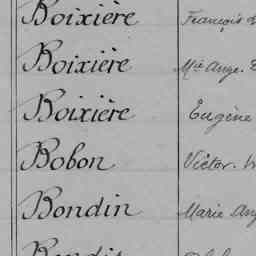 Boixière François
Boixière Mie Ange.
Boixière Eugène
Bobon Victor.
Bondin Marie Ang